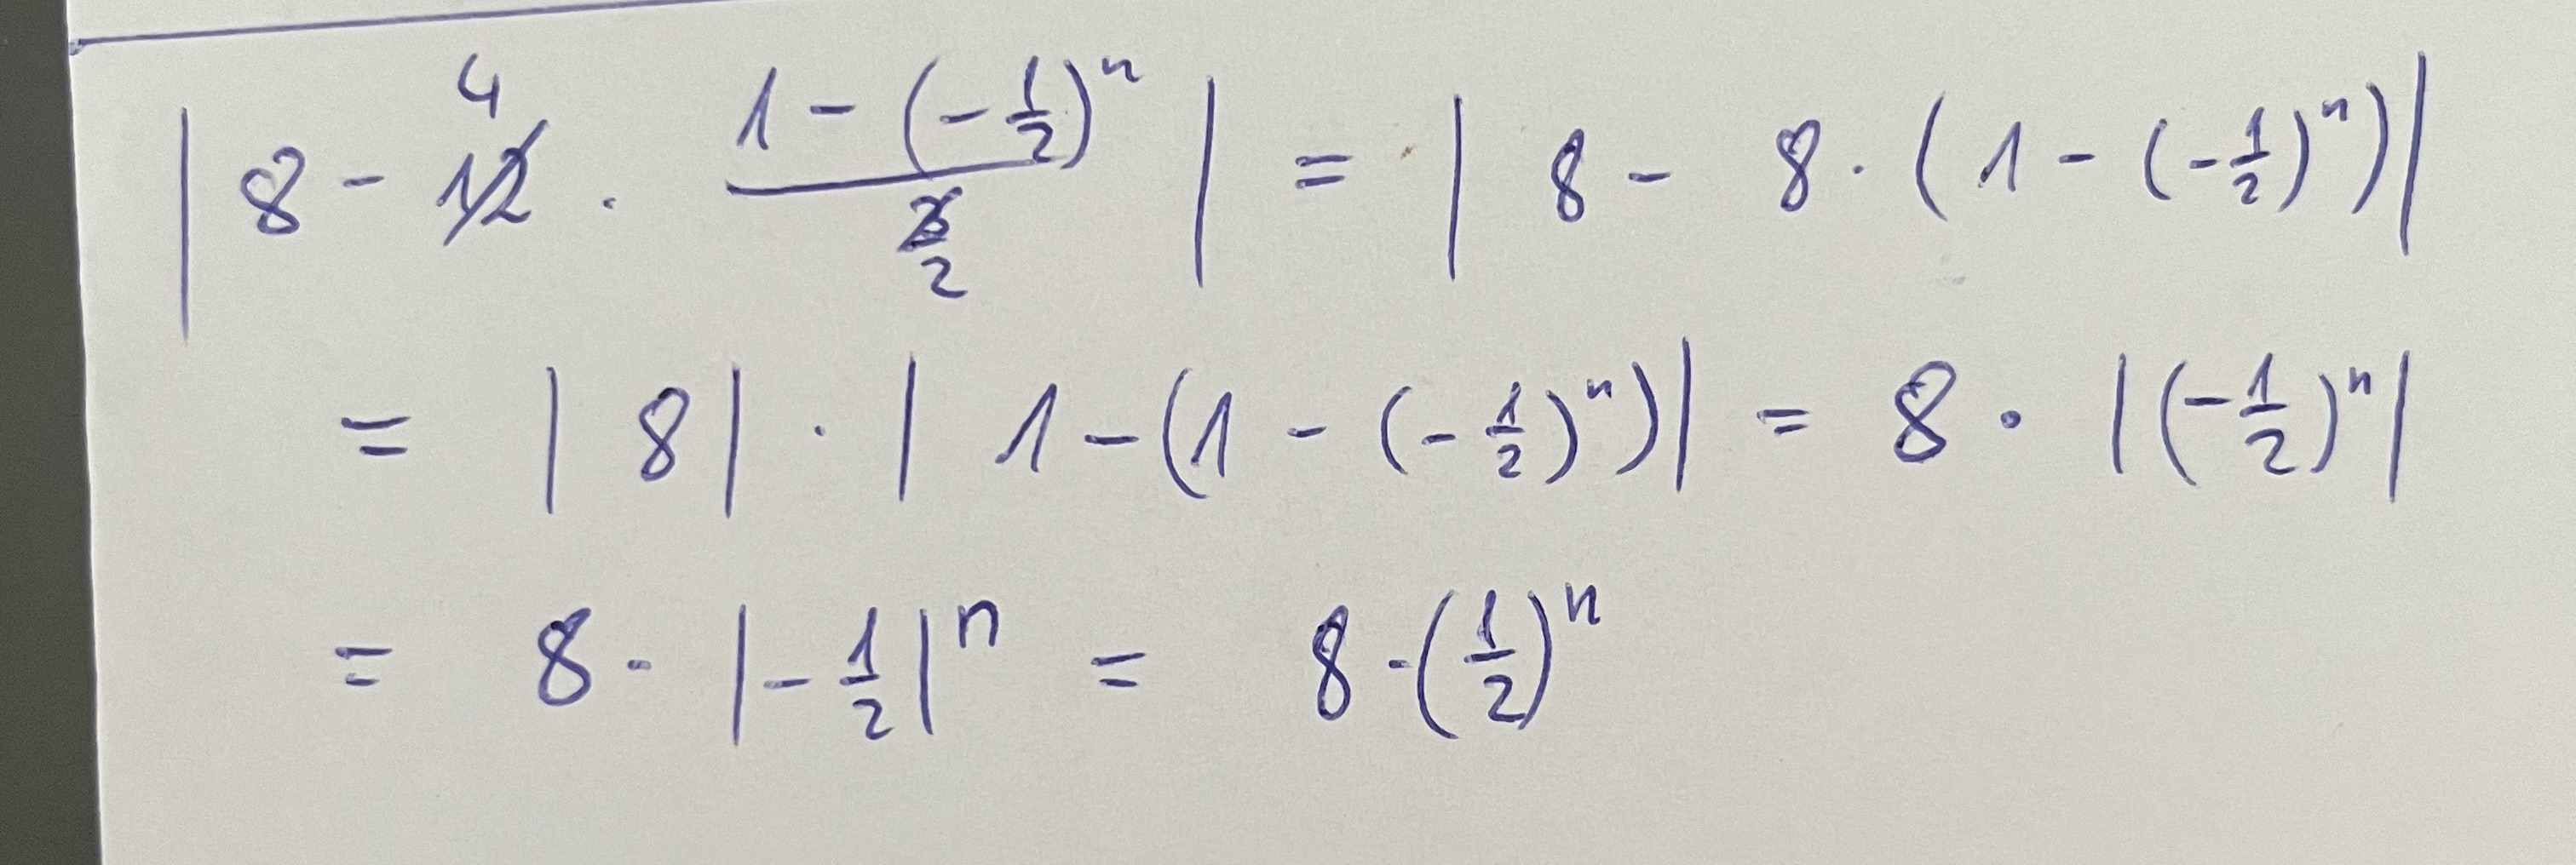 | 8 - 12 4 · (1 - (-1/2)^n) / (3/2) | = | 8 - 8 · (1 - (-1/2)^n) |
= | 8 | · | 1 - (1 - (-1/2)^n) | = 8 · | (-1/2)^n |
= 8 · | -1/2 |^n = 8 · (1/2)^n